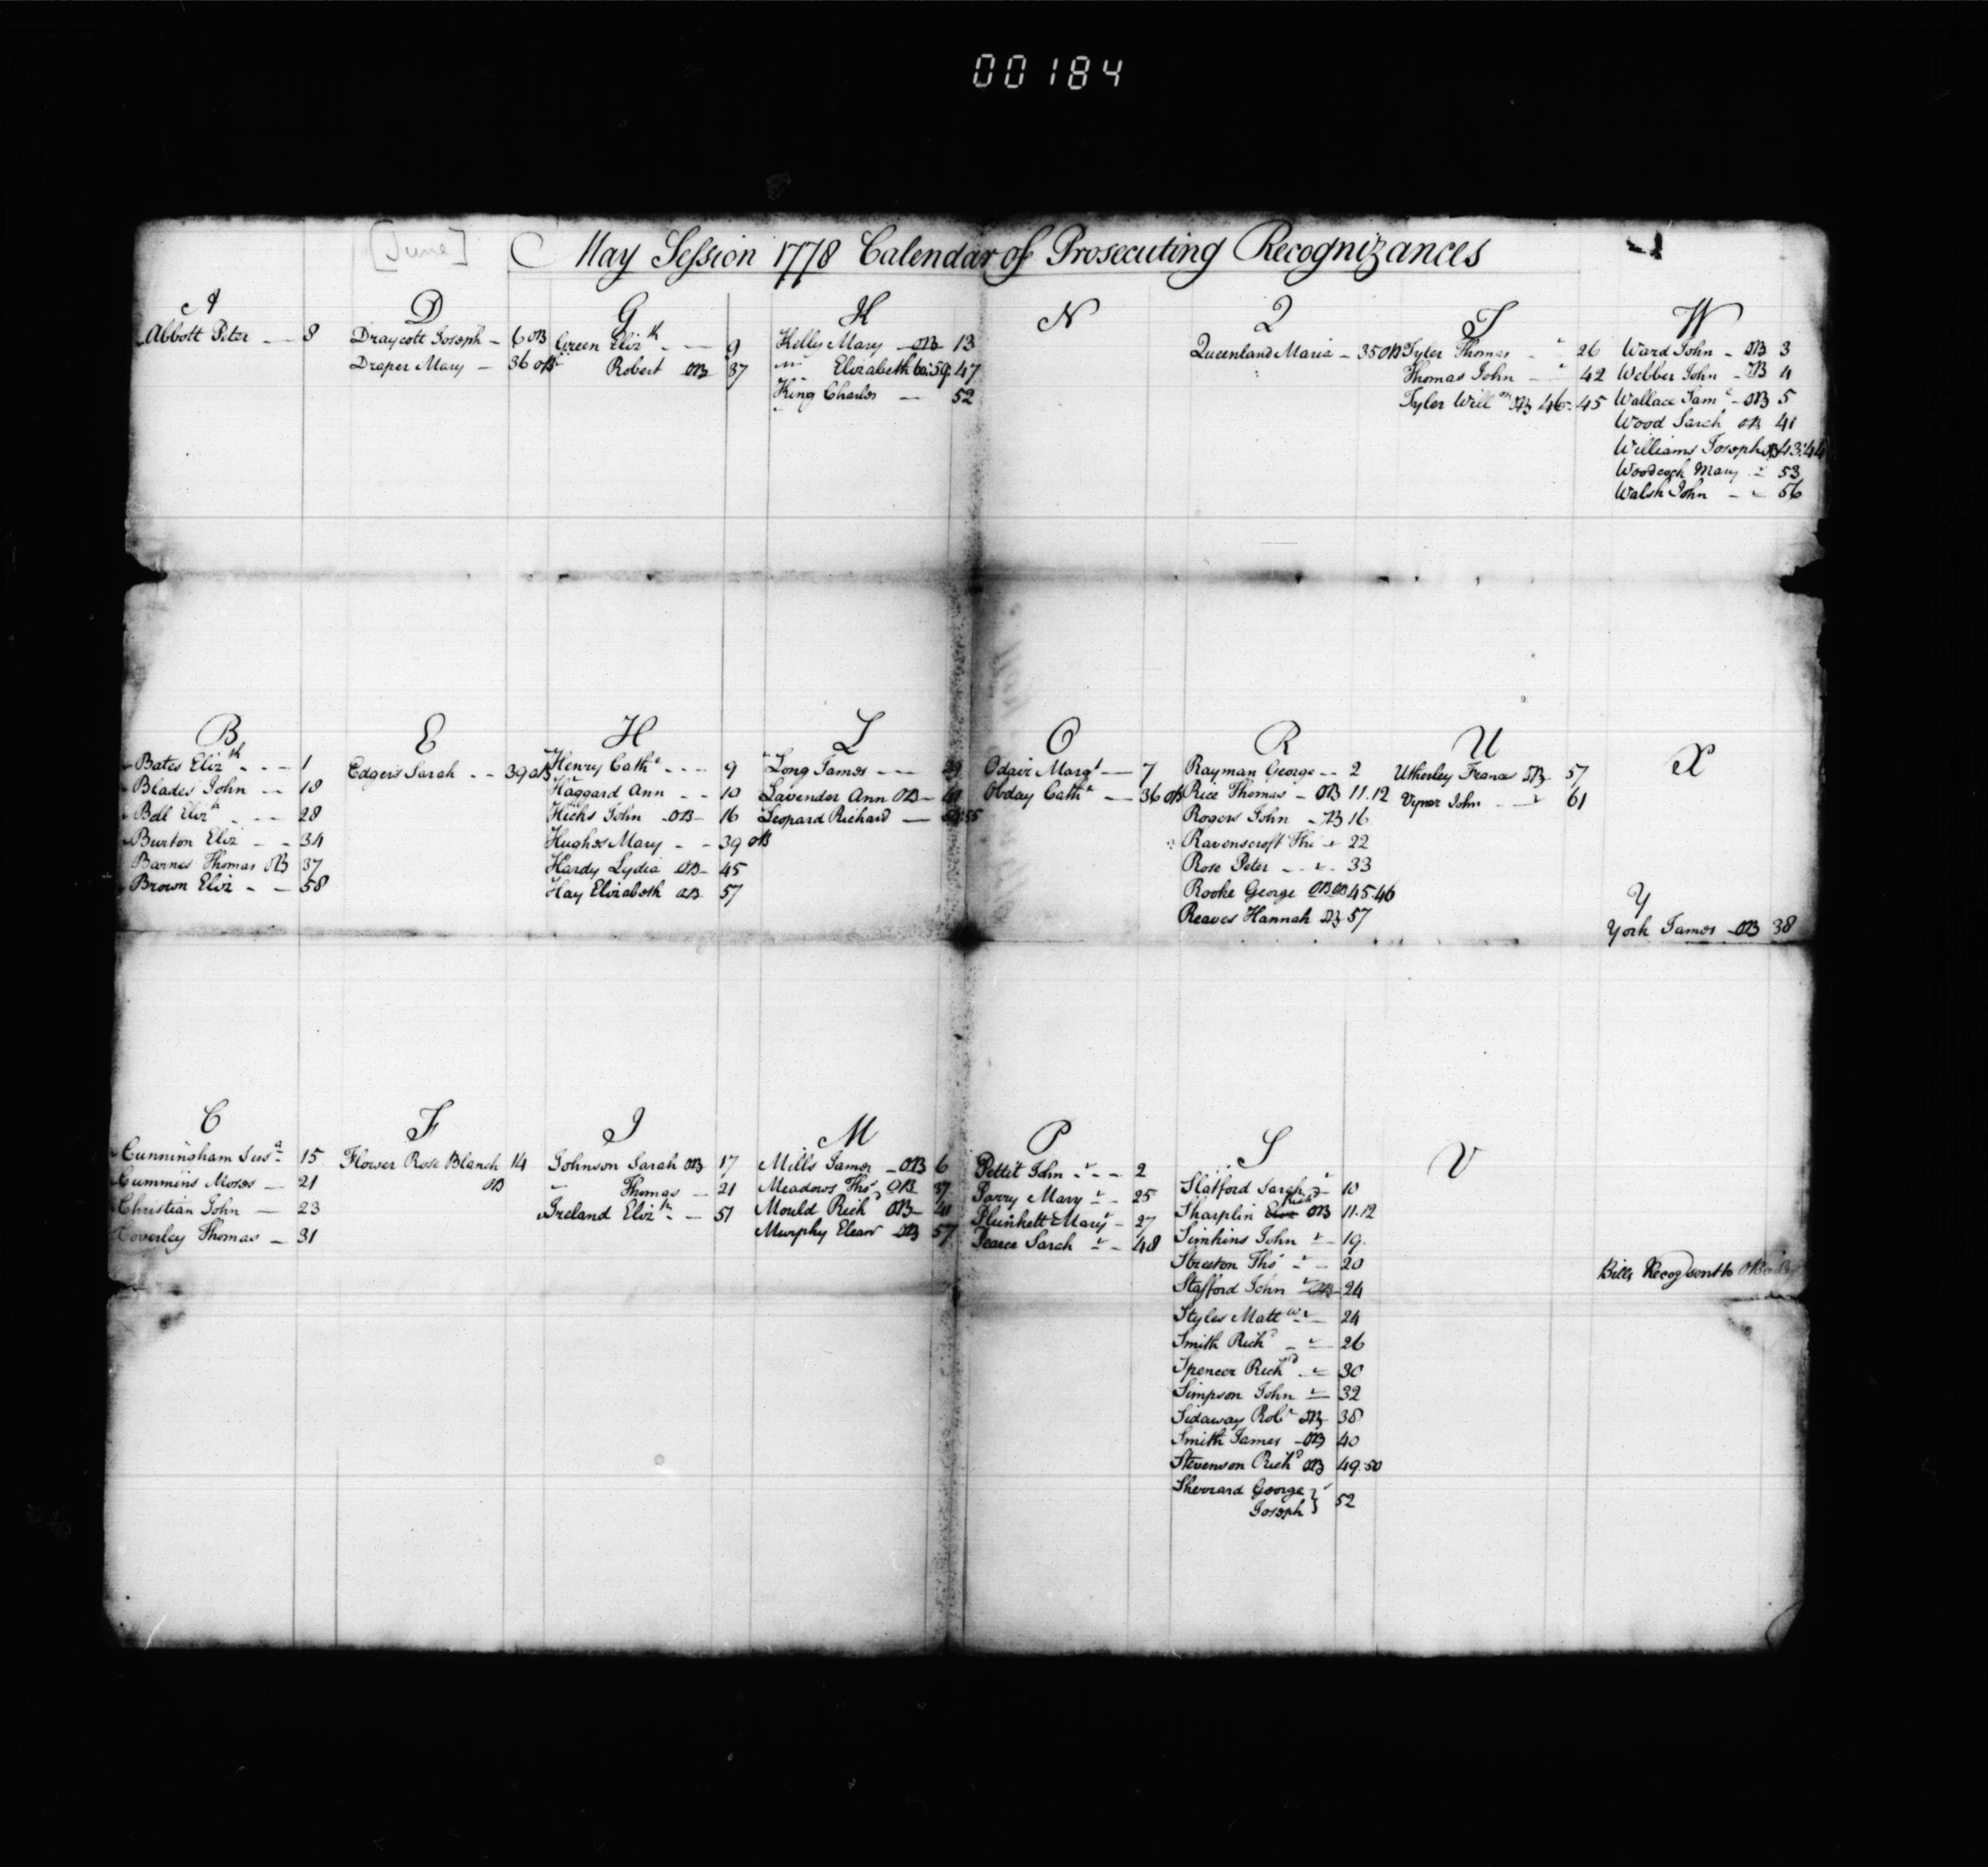 00184
[June]
May Session 1778 Calendar of Prosecuting Recognizances
A
Abbott Peter — 8
D
Draycott Joseph — 6 OB
Draper Mary — 36 OB
G
Green Eliz th — 9
Robert OB 37
K
Kelly Mary — OB 13
Elizabeth 60:59: 47
King Charles — 52
N
Q
Queenland Maria — 35 OB
T
Tyler Thomas — 26
Thomas John — 42
Tyler Will m OB 46: 45
W
Ward John — OB 3
Webber John — OB 4
Wallace Sam l — OB 5
Wood Sarah OB 41
Williams Joseph OB 43:44
Woodcock Mary — 53
Walsh John — 56
B
Bates Eliz th — 1
Blades John — 18
Bell Eliz th — 28
Burton Eliz — 34
Barnes Thomas OB 37
Brown Eliz — 58
E
Edgers Sarah — 39 OB
H
Henry Cath e — 9
Haggard Ann — 10
Hicks John — OB — 16
Hughes Mary — 39 OB
Hardy Lydia OB — 45
Hay Elizabeth OB 57
L
Long James — 29
Lavender Ann OB — 41
Leopard Richard —
O
Odair Marg t — 7
Obday Cath e — 36 OB
R
Rayman George — 2
Rice Thomas — OB 11.12
Rogers John — OB 16
Ravenscroft Tho — 22
Rose Peter — 33
Rooke George OB OB 45.46
Reaves Hannah OB 57
U
Utherley Frances OB 57
Vyner John — 61
X
Y
York James — OB 38
C
Cunningham Sus a — 15
Cummins Moses — 21
Christian John — 23
Coverley Thomas — 31
F
Flower Rose Blanch 14
OB
I
Johnson Sarah OB 17
Thomas — 21
Ireland Eliz th — 51
M
Mills James — OB 6
Meadows Tho s OB 37
Mould Rich d OB — 41
Murphy Elean r OB 57
P
Pettit John — 2
Parry Mary — 25
Plunkett Mary — 27
Pearce Sarah — 48
S
Slatford Sarah — 10
Sharplin Eliz Rich d OB 11.12
Simkins John — 19.
Streeton Tho s — 20
Stafford John — OB — 24
Styles Matt w — 24
Smith Rich d — 26
Spencer Rich d — 30
Simpson John — 32
Sidaway Rob t OB 38
Smith James — OB 40
Stevenson Rich d OB 49.50
Sherrard George } 52
Joseph
V
Bills Recog sent to O Bailey